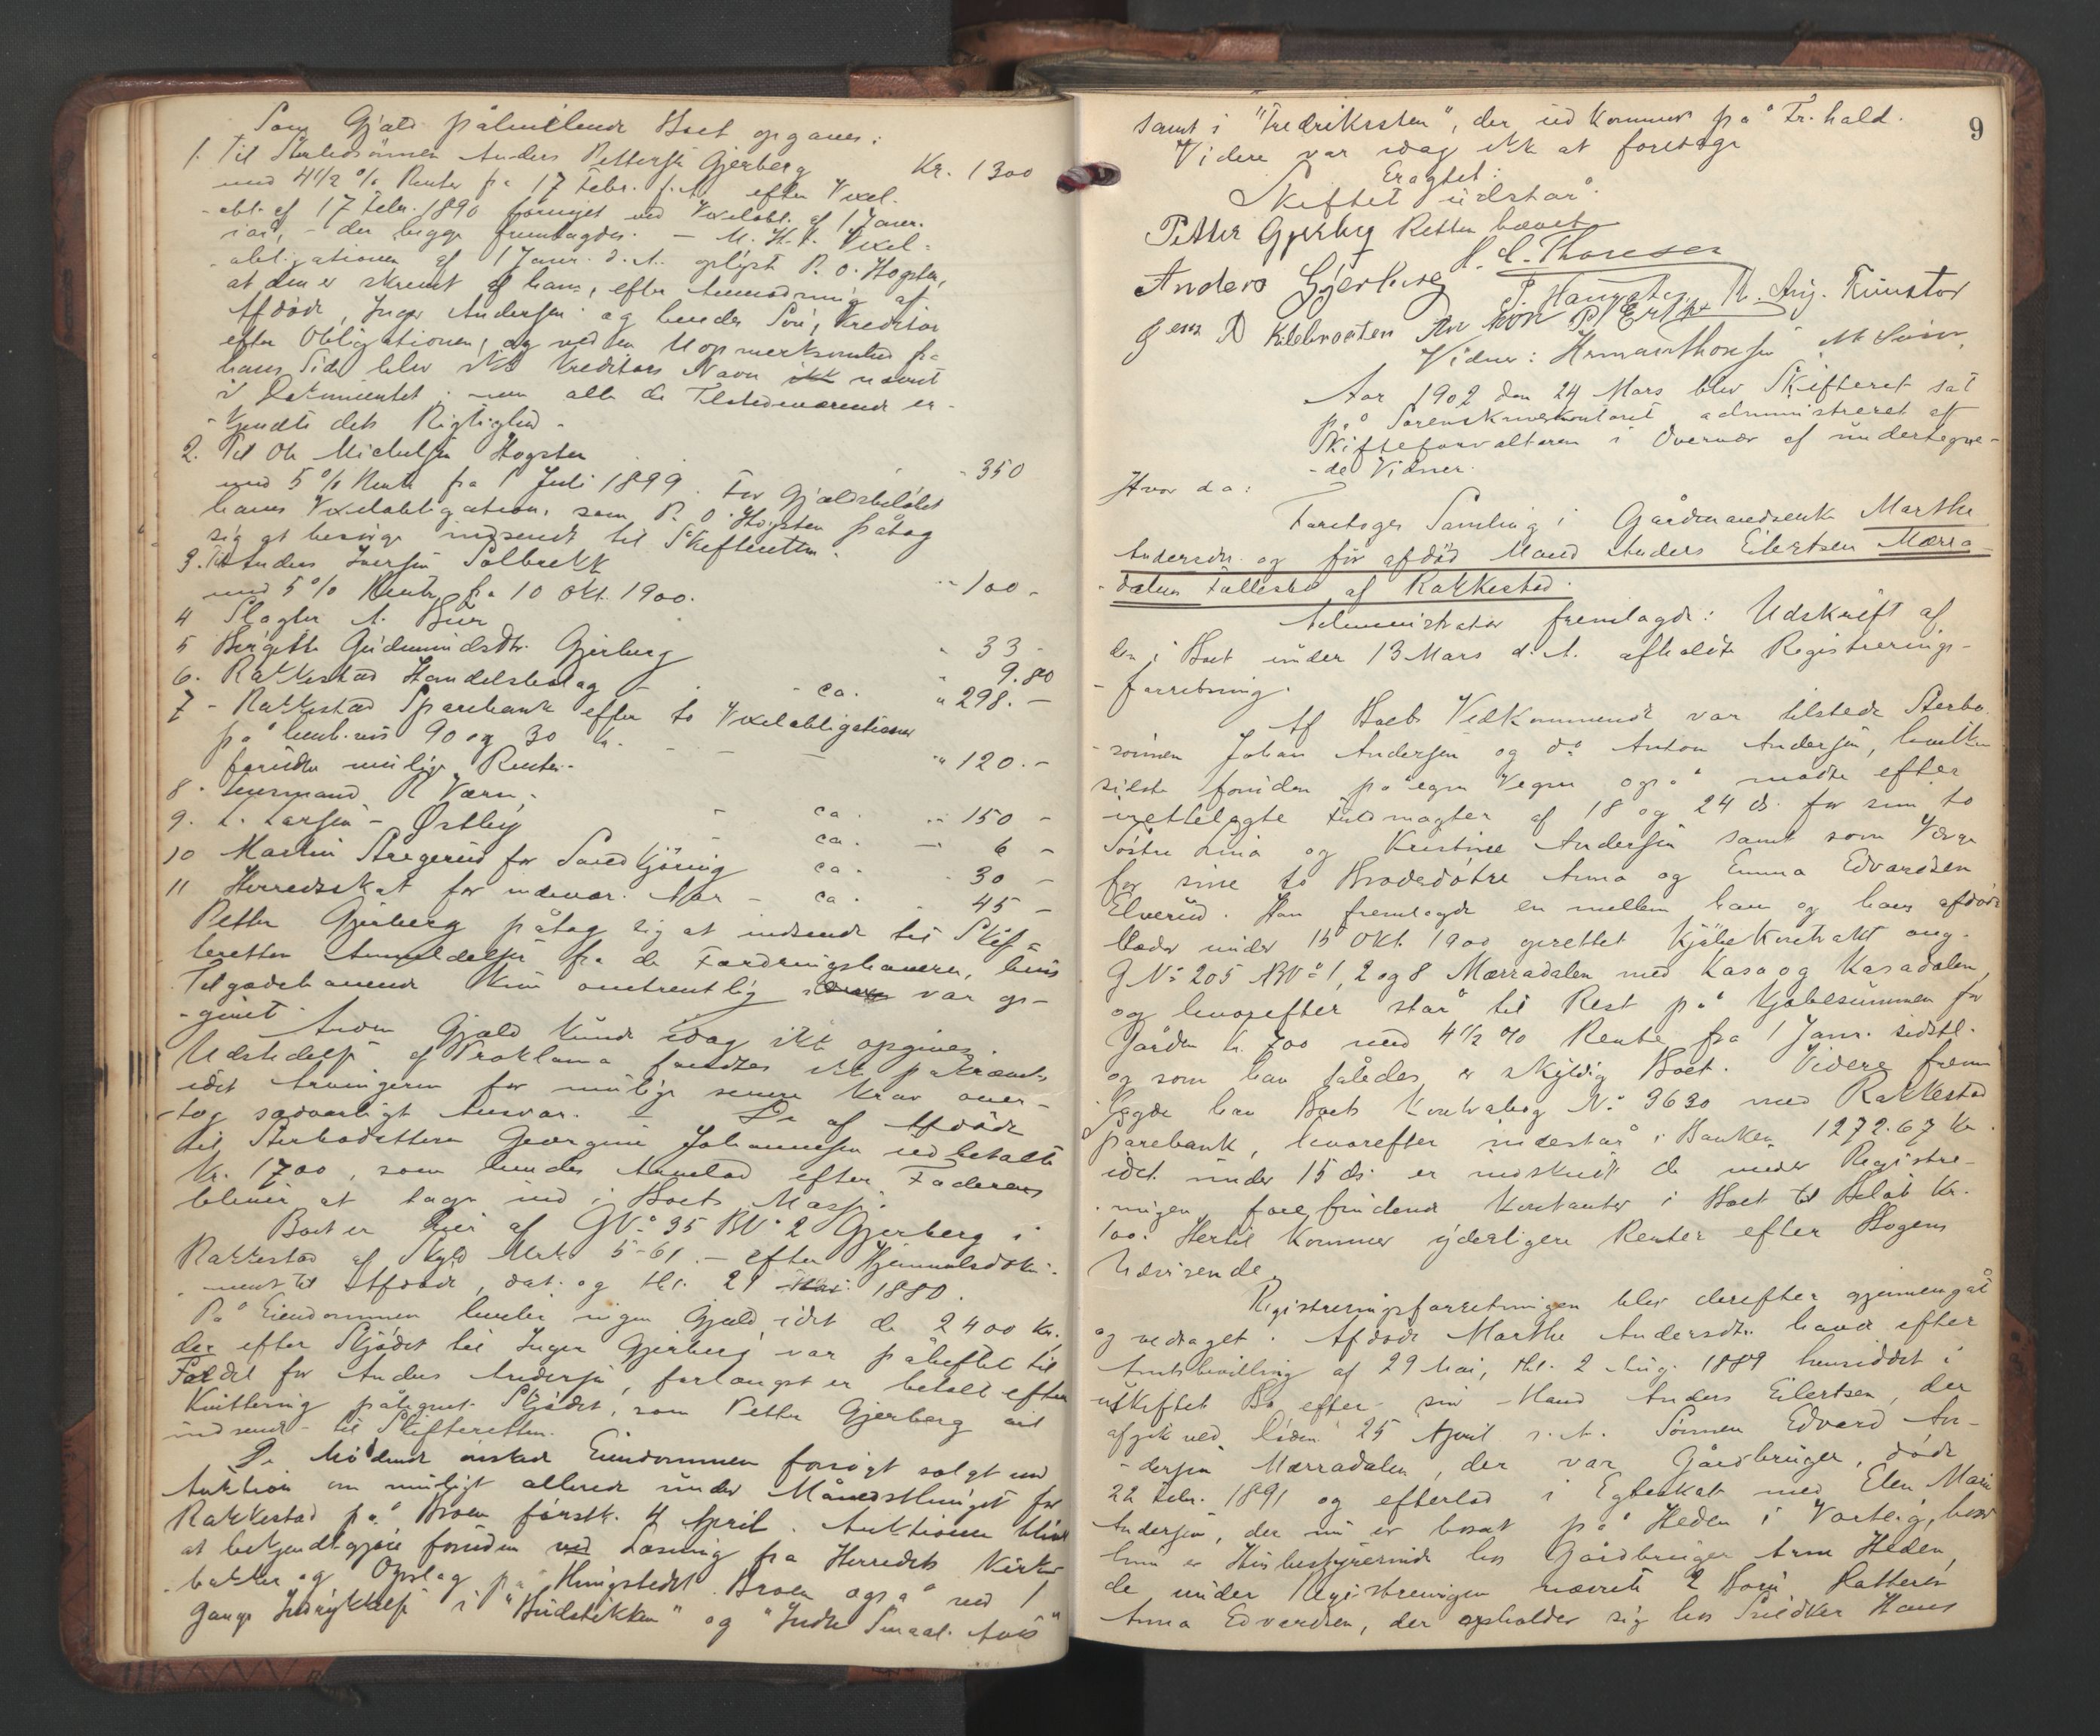 Som Gjæld påhvilende Boet opgaves:
1. Til Sterbosønnen Anders Pettersen Gjerberg Kr. 1300
med 4 1/2 % Renter fra 17 Febr. f. A. efter Vexel-
obl. af 17 Febr. 1890 fornyet ved Vexelobl. af 1 Janr.
iaar, - der begge fremlagdes. - M. H. t. Vexel-
obligationen af 1 Janr. d. A. oplyste P. O. Høgsten,
at den er skrevet af ham, efter Anmodning af
Afdøde, Inger Andersen og hendes Søn, Kreditor
efter Obligationen, og ved en Uopmerksomhed fra
hans Side blev Kreditors Navn ikke nævnt
i Dokumentet; men alle de Tilstedeværende er-
-kjendte dets Rigtighed.
2. Til Ole Michelsen Høgsten - 350
med 5 % Rente fra 1 Juli 1899. For Gjældsbeløbet
haves Vexelobligation, som P. O. Høgsten påtog
sig at besørge indsendt til Skifteretten.
3. Til Anders Iversen Solbrekk - 100 -
med 5 % Rente fra 10 Okt. 1900.
4 Slagter A. Buer " 33 -
5 Bergitte Gudmundsdtr. Gjerberg " 9.80
6. Rakkestad Handelsbolag - - ca. " 298. -
7 - Rakkestad Sparebank efter to Vexelobligationer
på henh.vis 90 og 30 Kr. - - - " 120. -
foruden mulige Renter.
8. Lensmand R Værn, - ca. " 150 -
9. L. Larsen - Østby - ca. - 6 -
10 Martin Stegerud for Sandkjøring ca. - 30 -
11 Herredsskat for indevær. Aar - ca. - 45 -
Petter Gjerberg påtog sig at indsende til Skif-
teretten Anmeldelser fra de Fordringshavere, hvis
Tilgodehavende kun omtrentlig var op-
-givet.
Anden Gjæld kunde idag ikke opgives.
Udstedelse af Proklama fandtes ikke påkrævet
idet Arvingerne for mulige senere Krav over-
-tog sædvanligt Ansvar. - De af Afdøde
til Sterbodatteren Georgine Johannesen udbetalte
Kr. 1700, som hendes Arvelod efter Faderen
bliver at tage ind i Boets Masse.
Boet er Eier af GNo 35 BNo 2 Gjerberg i
Rakkestad af Skyld Mrk 5-61 - efter Hjemmelsdoku-
-ment til Afdøde, dat. og thl. 21 1880.
På Eiendommen hviler ingen Gjæld, idet de 2400 Kr.
der efter Skjødet til Inger Gjerberg var påheftet til
Fordel for Anders Andersen, forlængst er betalt efter
Kvittering påtegnet Skjødet, som Petter Gjerberg vil
indsende til Skifteretten.
De Mødende ønsked Eiendommen forsøgt solgt ved
Auktion om muligt allerede under Månedsthinget for
Rakkestad på Broen førstk. 4 April. Auktionen bliver
at bekjendtgjøre foruden ved Læsning fra Herredets Kirke-
-bakker og Opslag på Thingstedet Broen også ved 1
Gangs Indrykkelse i "Budstikken" og "Indre Smaal. Avis"
9
samt i "Fredriksten", der udkommer på Fr.hald.
Videre var idag ikke at foretage
Eragtet:
Skiftet udstår.
Petter Gjerberg Retten hævet
H. C. Thoresen
Anders Gjerberg
Vidner:
Aar 1902 den 24 Mars blev Skifteret sat
på Sorenskriverkontoret administreret af
Skifteforvalteren i Overvær af undertegne-
-de Vidner.
Hvor da:
Foretoges Samling i Gårdmandsenke Marthe
Andersdtr. og før afdød Mand Anders Eilertsen Mærra-
-dalens Fællesbo af Rakkestad.
Administrator fremlagde: Udskrift af
den i Boet under 13 Mars d. A. afholdte Registrerings-
-forretning.
Af Boets Vedkommende var tilstede Sterbo-
-sønnen Johan Andersen og do Anton Andersen, hvilken
sidste foruden på egne Vegne også mødte efter
irettelagte Fuldmagter af 18 og 24 ds. for sine to
Søstre Lina og Kristine Andersen samt som Værge
for sine to Brodesdøtre Anna og Emma Edvardsen
Elverud. Han fremlagde en mellem ham og hans afdøde
Moder under 15 Okt. 1900 oprettet Kjøbekontrakt ang.
GNo 205 BNo 1, 2 og 8 Mærradalen med Kasa og Kasadalen,
og hvorefter står til Rest på Kjøbesummen for
Gården Kr. 700 med 4 1/2 % Rente fra 1 Janr. sidstl.
og som han således er skyldig Boet. Videre frem-
-lagde han Boets Kontrabog No 3630 med Rakkestad
Sparebank, hvorefter indestår i Banken 1272.67 Kr.
idet under 15 ds. er indskudt de under Registre-
-ringen forefindende Kontanter i Boet til Beløb Kr.
100. Hertil kommer yderligere Renter efter Bogens
Udvisende.
Registreringsforretningen blev derefter gjennemgåt
og vedtaget. Afdøde Marthe Andersdtr. havde efter
Amtsbevilling af 29 Mai, thl. 2 Aug. 1889 hensiddet i
uskiftet Bo efter sin Mand Anders Eilertsen, der
afgik ved Døden 25 April s. A. Sønnen Edvard An-
-dersen Mærradalen, der var Gårdbruger, døde
22 Febr. 1891 og efterlod i Egteskab med Elen Marie
Andersen, der nu er bosat på Heden i Varteig, hvor
hun er Husbestyrerinde hos Gårdbruger Heden,
de under Registreringen nævnte 2 Børn, Datteren
Anna Edvardsen, der opholder sig hos Snedker Hans